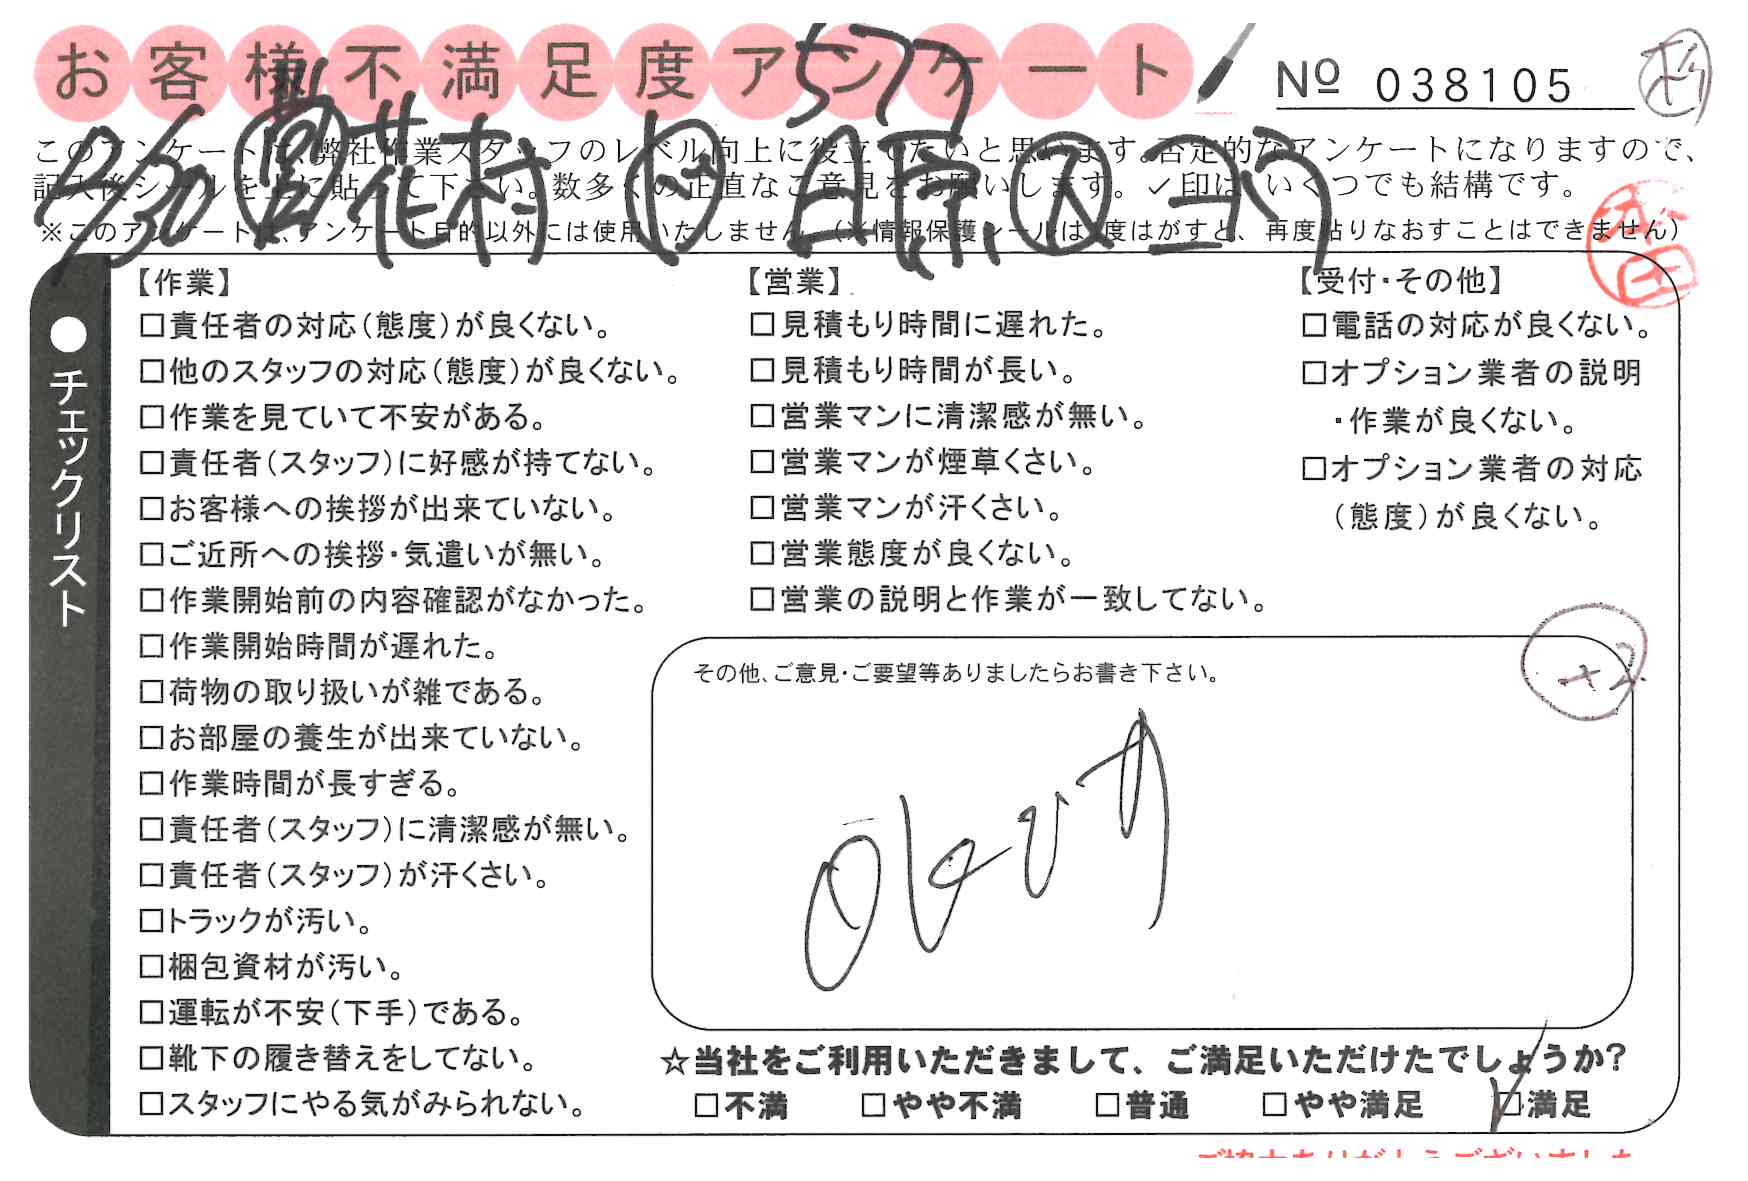 お客様不満足度アンケート
Nº 038105
577
このアンケートは、弊社作業スタッフのレベル向上に役立てたいと思います。否定的なアンケートになりますので、
記入後シールを上に貼って下さい。数多くの正直なご意見をお願いします。✓印は、いくつでも結構です。
※このアンケートは、アンケート目的以外には使用いたしません。(※情報保護シールは1度はがすと、再度貼りなおすことはできません)
花村
●チェックリスト
【作業】
□責任者の対応(態度)が良くない。
□他のスタッフの対応(態度)が良くない。
□作業を見ていて不安がある。
□責任者(スタッフ)に好感が持てない。
□お客様への挨拶が出来ていない。
□ご近所への挨拶・気遣いが無い。
□作業開始前の内容確認がなかった。
□作業開始時間が遅れた。
□荷物の取り扱いが雑である。
□お部屋の養生が出来ていない。
□作業時間が長すぎる。
□責任者(スタッフ)に清潔感が無い。
□責任者(スタッフ)が汗くさい。
□トラックが汚い。
□梱包資材が汚い。
□運転が不安(下手)である。
□靴下の履き替えをしてない。
□スタッフにやる気がみられない。
【営業】
□見積もり時間に遅れた。
□見積もり時間が長い。
□営業マンに清潔感が無い。
□営業マンが煙草くさい。
□営業マンが汗くさい。
□営業態度が良くない。
□営業の説明と作業が一致してない。
【受付・その他】
□電話の対応が良くない。
□オプション業者の説明
・作業が良くない。
□オプション業者の対応
(態度)が良くない。
その他、ご意見・ご要望等ありましたらお書き下さい。
+2
OKです
☆当社をご利用いただきまして、ご満足いただけたでしょうか?
□不満 □やや不満 □普通 □やや満足 ☑満足
ご協力ありがとうございました